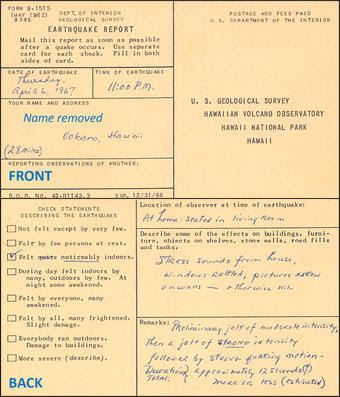 FORM 9-1515
(MAY 1962)
B385
DEPT. OF INTERIOR
GEOLOGICAL SURVEY
EARTHQUAKE REPORT
Mail this report as soon as possible
after a quake occurs. Use separate
card for each shock. Fill in both
sides of card.
DATE OF EARTHQUAKE
Thursday,
April 6, 1967
TIME OF EARTHQUAKE
11:00 P.M.
YOUR NAME AND ADDRESS
Name removed
Volcano, Hawaii
(28 miles)
REPORTING OBSERVATIONS OF ANOTHER:
FRONT
B.O.B. No. 42-R1143.3 EXP. 12/31/66
POSTAGE AND FEES PAID
U. S. DEPARTMENT OF THE INTERIOR
U. S. GEOLOGICAL SURVEY
HAWAIIAN VOLCANO OBSERVATORY
HAWAII NATIONAL PARK
HAWAII
CHECK STATEMENTS
DESCRIBING THE EARTHQUAKE
Not felt except by very few.
Felt by few persons at rest.
Felt quite noticeably indoors.
During day felt indoors by
many, outdoors by few. At
night some awakened.
Felt by everyone, many
awakened.
Felt by all, many frightened.
Slight damage.
Everybody ran outdoors.
Damage to buildings.
More severe (describe).
BACK
Location of observer at time of earthquake:
At home: seated in living room
Describe some of the effects on buildings, furni-
ture, objects on shelves, stone walls, road fills
and tanks.
Stress sounds from house,
windows rattled, pictures askew
on walls — otherwise nil.
Remarks: Preliminary jolt of moderate intensity,
then a jolt of strong intensity
followed by strong quaking motion-
Duration approximately 12 seconds (?)
Total: more or less (estimated)